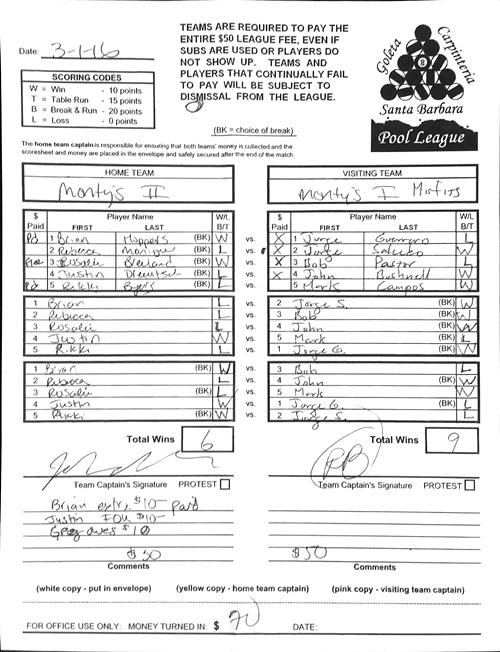 Date: 3-1-16
TEAMS ARE REQUIRED TO PAY THE
ENTIRE $50 LEAGUE FEE, EVEN IF
SUBS ARE USED OR PLAYERS DO
NOT SHOW UP. TEAMS AND
PLAYERS THAT CONTINUALLY FAIL
TO PAY WILL BE SUBJECT TO
DISMISSAL FROM THE LEAGUE.
(BK = choice of break)
Goleta
Carpinteria
8
Santa Barbara
Pool League
SCORING CODES
W = Win - 10 points
T = Table Run - 15 points
B = Break & Run - 20 points
L = Loss - 0 points
The home team captain is responsible for ensuring that both teams' money is collected and the
scoresheet and money are placed in the envelope and safely secured after the end of the match.
HOME TEAM VISITING TEAM
Monty's II Monty's I Misfits
$ Paid Player Name FIRST LAST W/L B/T $ Paid Player Name FIRST LAST W/L B/T
Pd 1 Brian (BK) W vs. X 1 Jorge Guerrero L
2 Rebecca L vs. 2 Jorge W
3 Rosalie (BK) W vs. X 3 Bob Pastor L
4 Justin L vs. X 4 John Bushnell W
Pd 5 Rikki (BK) L vs. 5 Mark Campos W
1 Brian L vs. 2 Jorge S. (BK) W
2 Rebecca L vs. 3 Bob (BK) W
3 Rosalie L vs. 4 John (BK) W
4 Justin W vs. 5 Mark (BK) L
5 Rikki L vs. 1 Jorge G. (BK) W
1 Brian (BK) W vs. 3 Bob L
2 Rebecca L vs. 4 John (BK) W
3 Rosalie (BK) L vs. 5 Mark W
4 Justin W vs. 1 Jorge G. (BK) L
5 Rikki (BK) W vs. 2 Jorge S. L
Total Wins 6 Total Wins 9
Team Captain's Signature PROTEST Team Captain's Signature PROTEST
Brian extra $10- paid
Justin IOU $10-
Greg owes $10
$50 $50
Comments Comments
(white copy - put in envelope) (yellow copy - home team captain) (pink copy - visiting team captain)
FOR OFFICE USE ONLY: MONEY TURNED IN: $ 70 DATE: